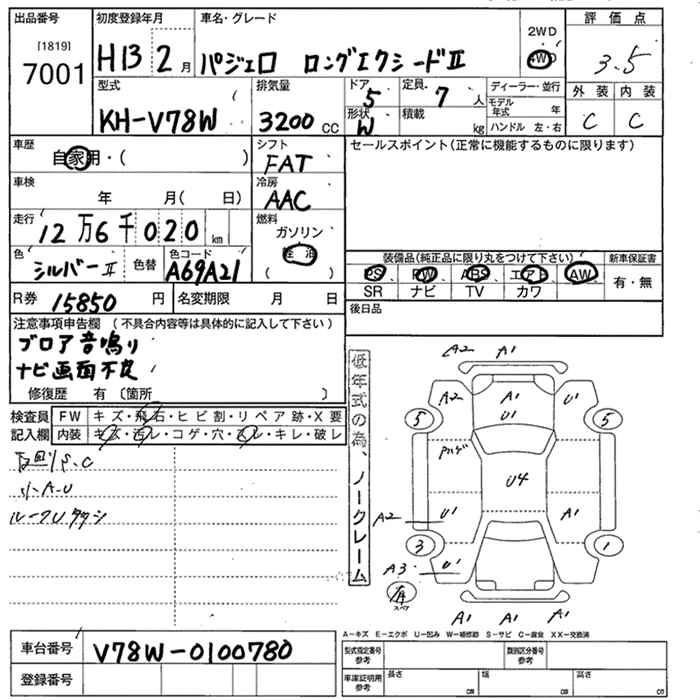 出品番号 初度登録年月 車名・グレード 2WD 評価点
[1819]
7001 H13 2月 パジェロ ロングエクシードⅡ 4WD 3.5
型式 排気量 ドア 定員 ディーラー・並行 外装 内装
KH-V78W 3200cc 5 7人 モデル年式 年 C C
形状 W 積載 kg ハンドル 左・右
車歴 自家用・( ) シフト FAT セールスポイント(正常に機能するものに限ります)
車検 年 月( 日) 冷房 AAC
走行 12万6千020km 燃料 ガソリン
軽油
( )
色 シルバーⅡ 色替 色コード A69A21
装備品(純正品に限り丸をつけて下さい) 新車保証書
PS PW ABS エアB AW 有・無
SR ナビ TV カワ
R券 15850円 名変期限 月 日 後日品
注意事項申告欄(不具合内容等は具体的に記入して下さい)
ブロア音鳴り
ナビ画面不良
修復歴 有〔箇所 〕
検査員 FW キズ・飛石・ヒビ割・リペア跡・X要
記入欄 内装 キズ・汚レ・コゲ・穴・スレ・キレ・破レ
下回りS.C
小A・U
低年式の為、ノークレーム
A2 A1
A2 A1 U1 U1
5 5
U4
A2 U1 A1
3 1
A3 U1
有 スペア
A1 A1 A1
A-キズ E-エクボ U-凹み W-補修跡 S-サビ C-腐食 XX-交換済
車台番号 V78W-0100780
型式指定番号 参考 類別区分番号 参考
登録番号
車庫証明用 参考 長さ cm 幅 cm 高さ cm